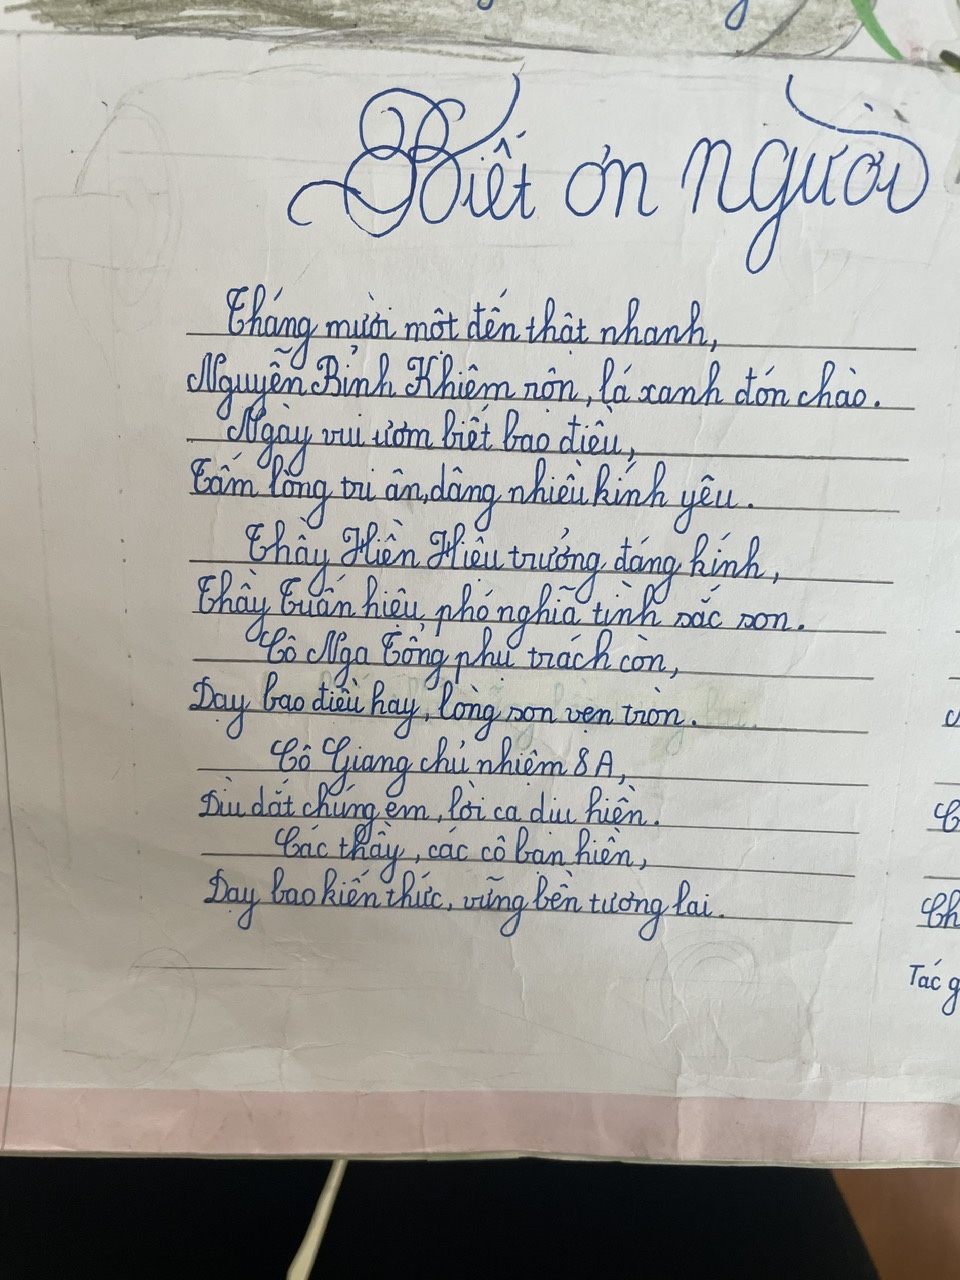 Biết ơn người
Tháng mười một đến thật nhanh,
Nguyễn Bỉnh Khiêm rộn, lá xanh đón chào.
Ngày vui ươm biết bao điều,
Tấm lòng tri ân, dâng nhiều kính yêu.
Thầy Hiền Hiệu trưởng đáng kính,
Thầy Tuấn hiệu phó nghĩa tình sắc son.
Cô Nga Tổng phụ trách còn,
Dạy bao điều hay, lòng son vẹn tròn.
Cô Giang chủ nhiệm 8A,
Dìu dắt chúng em, lời ca dịu hiền.
Các thầy, các cô bạn hiền,
Dạy bao kiến thức, vững bền tương lai.
Tác g